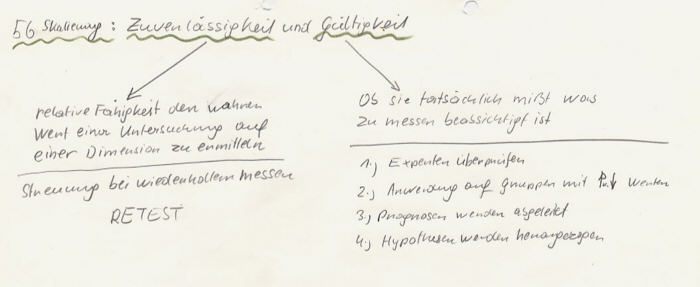 56 Skalierung: Zuverlässigkeit und Gültigkeit
relative Fähigkeit den wahren
Wert einer Untersuchung auf
einer Dimension zu ermitteln
Streuung bei wiederholtem messen
RETEST
Ob sie tatsächlich mißt was
zu messen beabsichtigt ist
1.) Experten überprüfen
2.) Anwendung auf Gruppen mit ↓ Werten
3.) Prognosen werden abgeleitet
4.) Hypothesen werden herangezogen